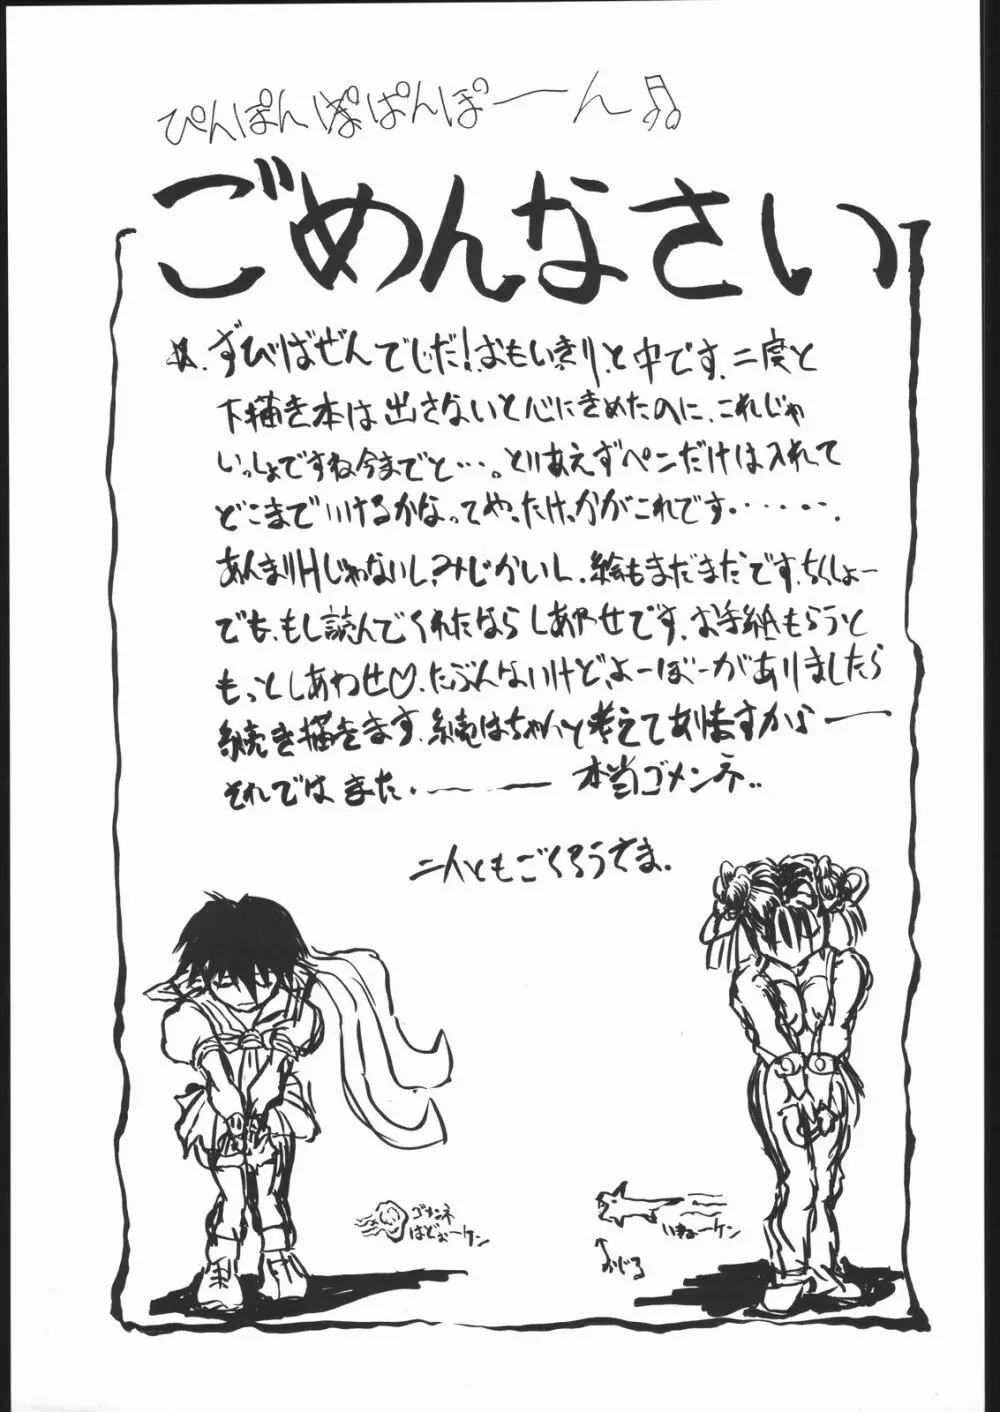 ぴんぽんぱぱんぽーん♫
ごめんなさい
☆.ずびばぜんでじだ!おもいきりと中です.二度と
下描き本は出さないと心にきめたのに、これじゃ
いっしょですね今までと…。とりあえずペンだけは入れて
どこまでいけるかなってやったけっかがこれです・・・・・・
あんまりHじゃないし?みじかいし、絵もまだまだです、ちくしょー
でも、もし読んでくれたなら しあわせです.お手紙もらうと
もっとしあわせ♡.たぶんないけど、よーぼーがありましたら
続き描きます.続はちゃんと考えてありますから——
それでは また.—— 本当ゴメンネ..
二人ともごくろうさま.
ゴメンネ
はどぉーケン
いぬーケン
おじる